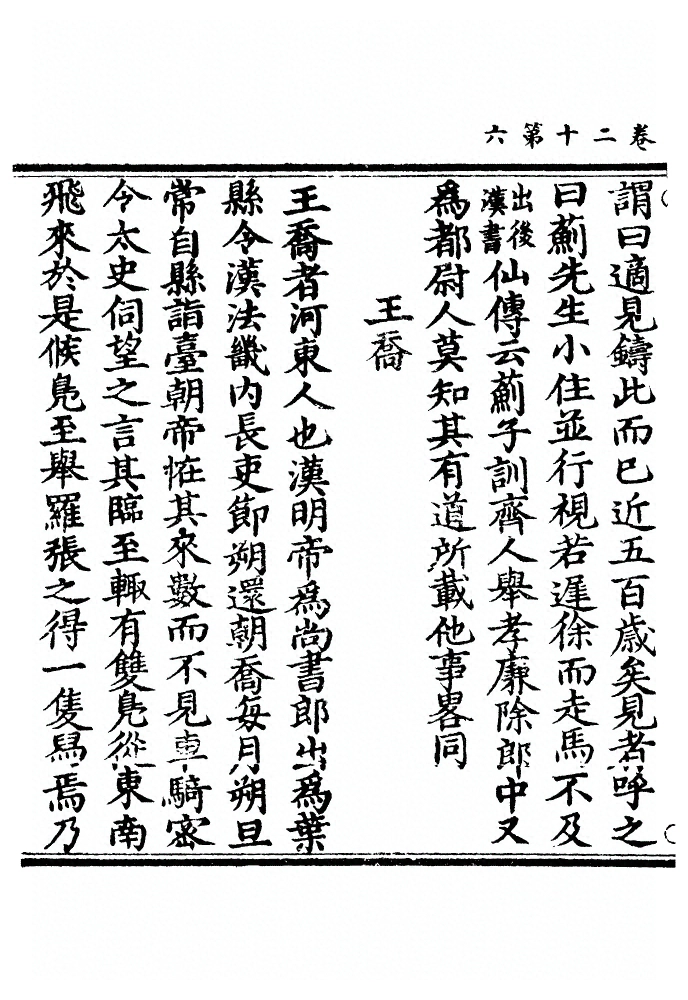 卷二十第六
謂曰適見鑄此而已近五百歲矣見者呼之
曰薊先生小住並行視若遲徐而走馬不及
出後漢書仙傳云薊子訓齊人舉孝廉除郎中又
爲都尉人莫知其有道所載他事畧同
王喬
王喬者河東人也漢明帝爲尚書郎出爲葉
縣令漢法畿內長吏節朔還朝喬每月朔旦
常自縣詣臺朝帝恠其來數而不見車騎密
令太史伺望之言其臨至輙有雙鳧從東南
飛來於是候鳧至舉羅張之得一隻舄焉乃